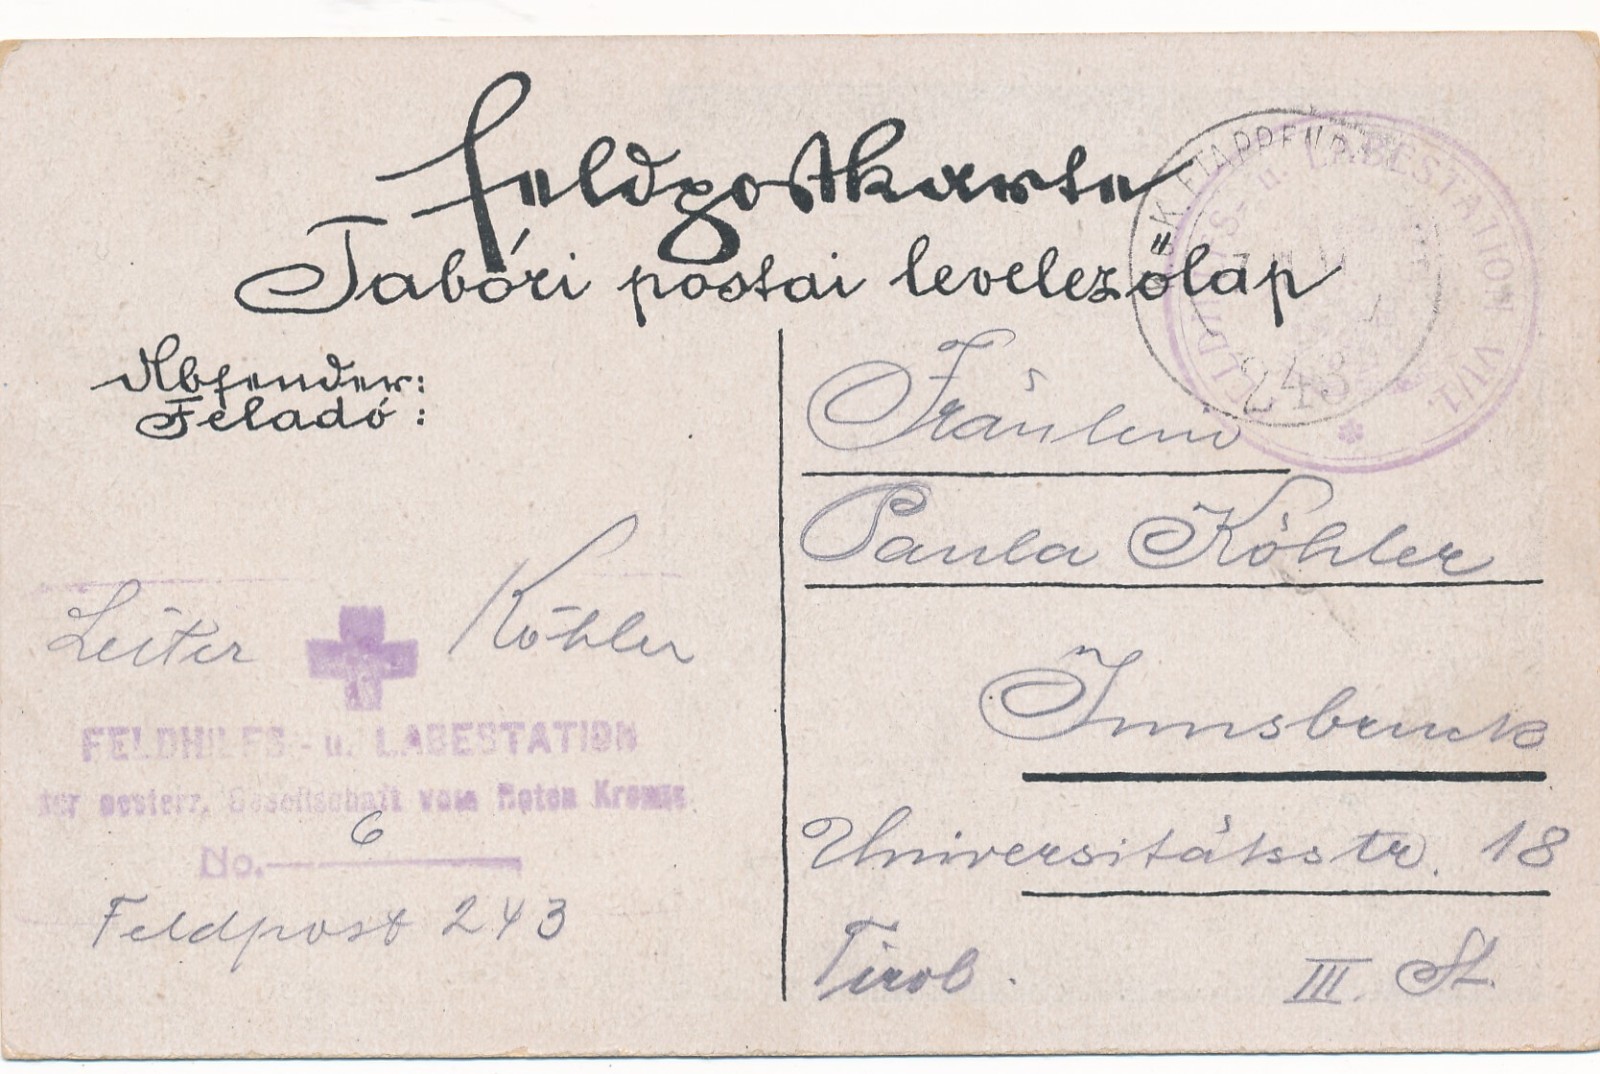 Feldpostkarte
Tabóri postai levelezőlap
K.u.K. ETAPPENPOSTAMT
243
FELDHILFS- u. LABESTATION VI/1.
Absender:
Feladó:
Leiter Köhler
FELDHILFS- u. LABESTATION
der oesterr. Gesellschaft vom Roten Kreuze
No. 6
Feldpost 243
Fräulein
Paula Köhler
Innsbruck
Universitätsstr. 18
Tirol. III. St.